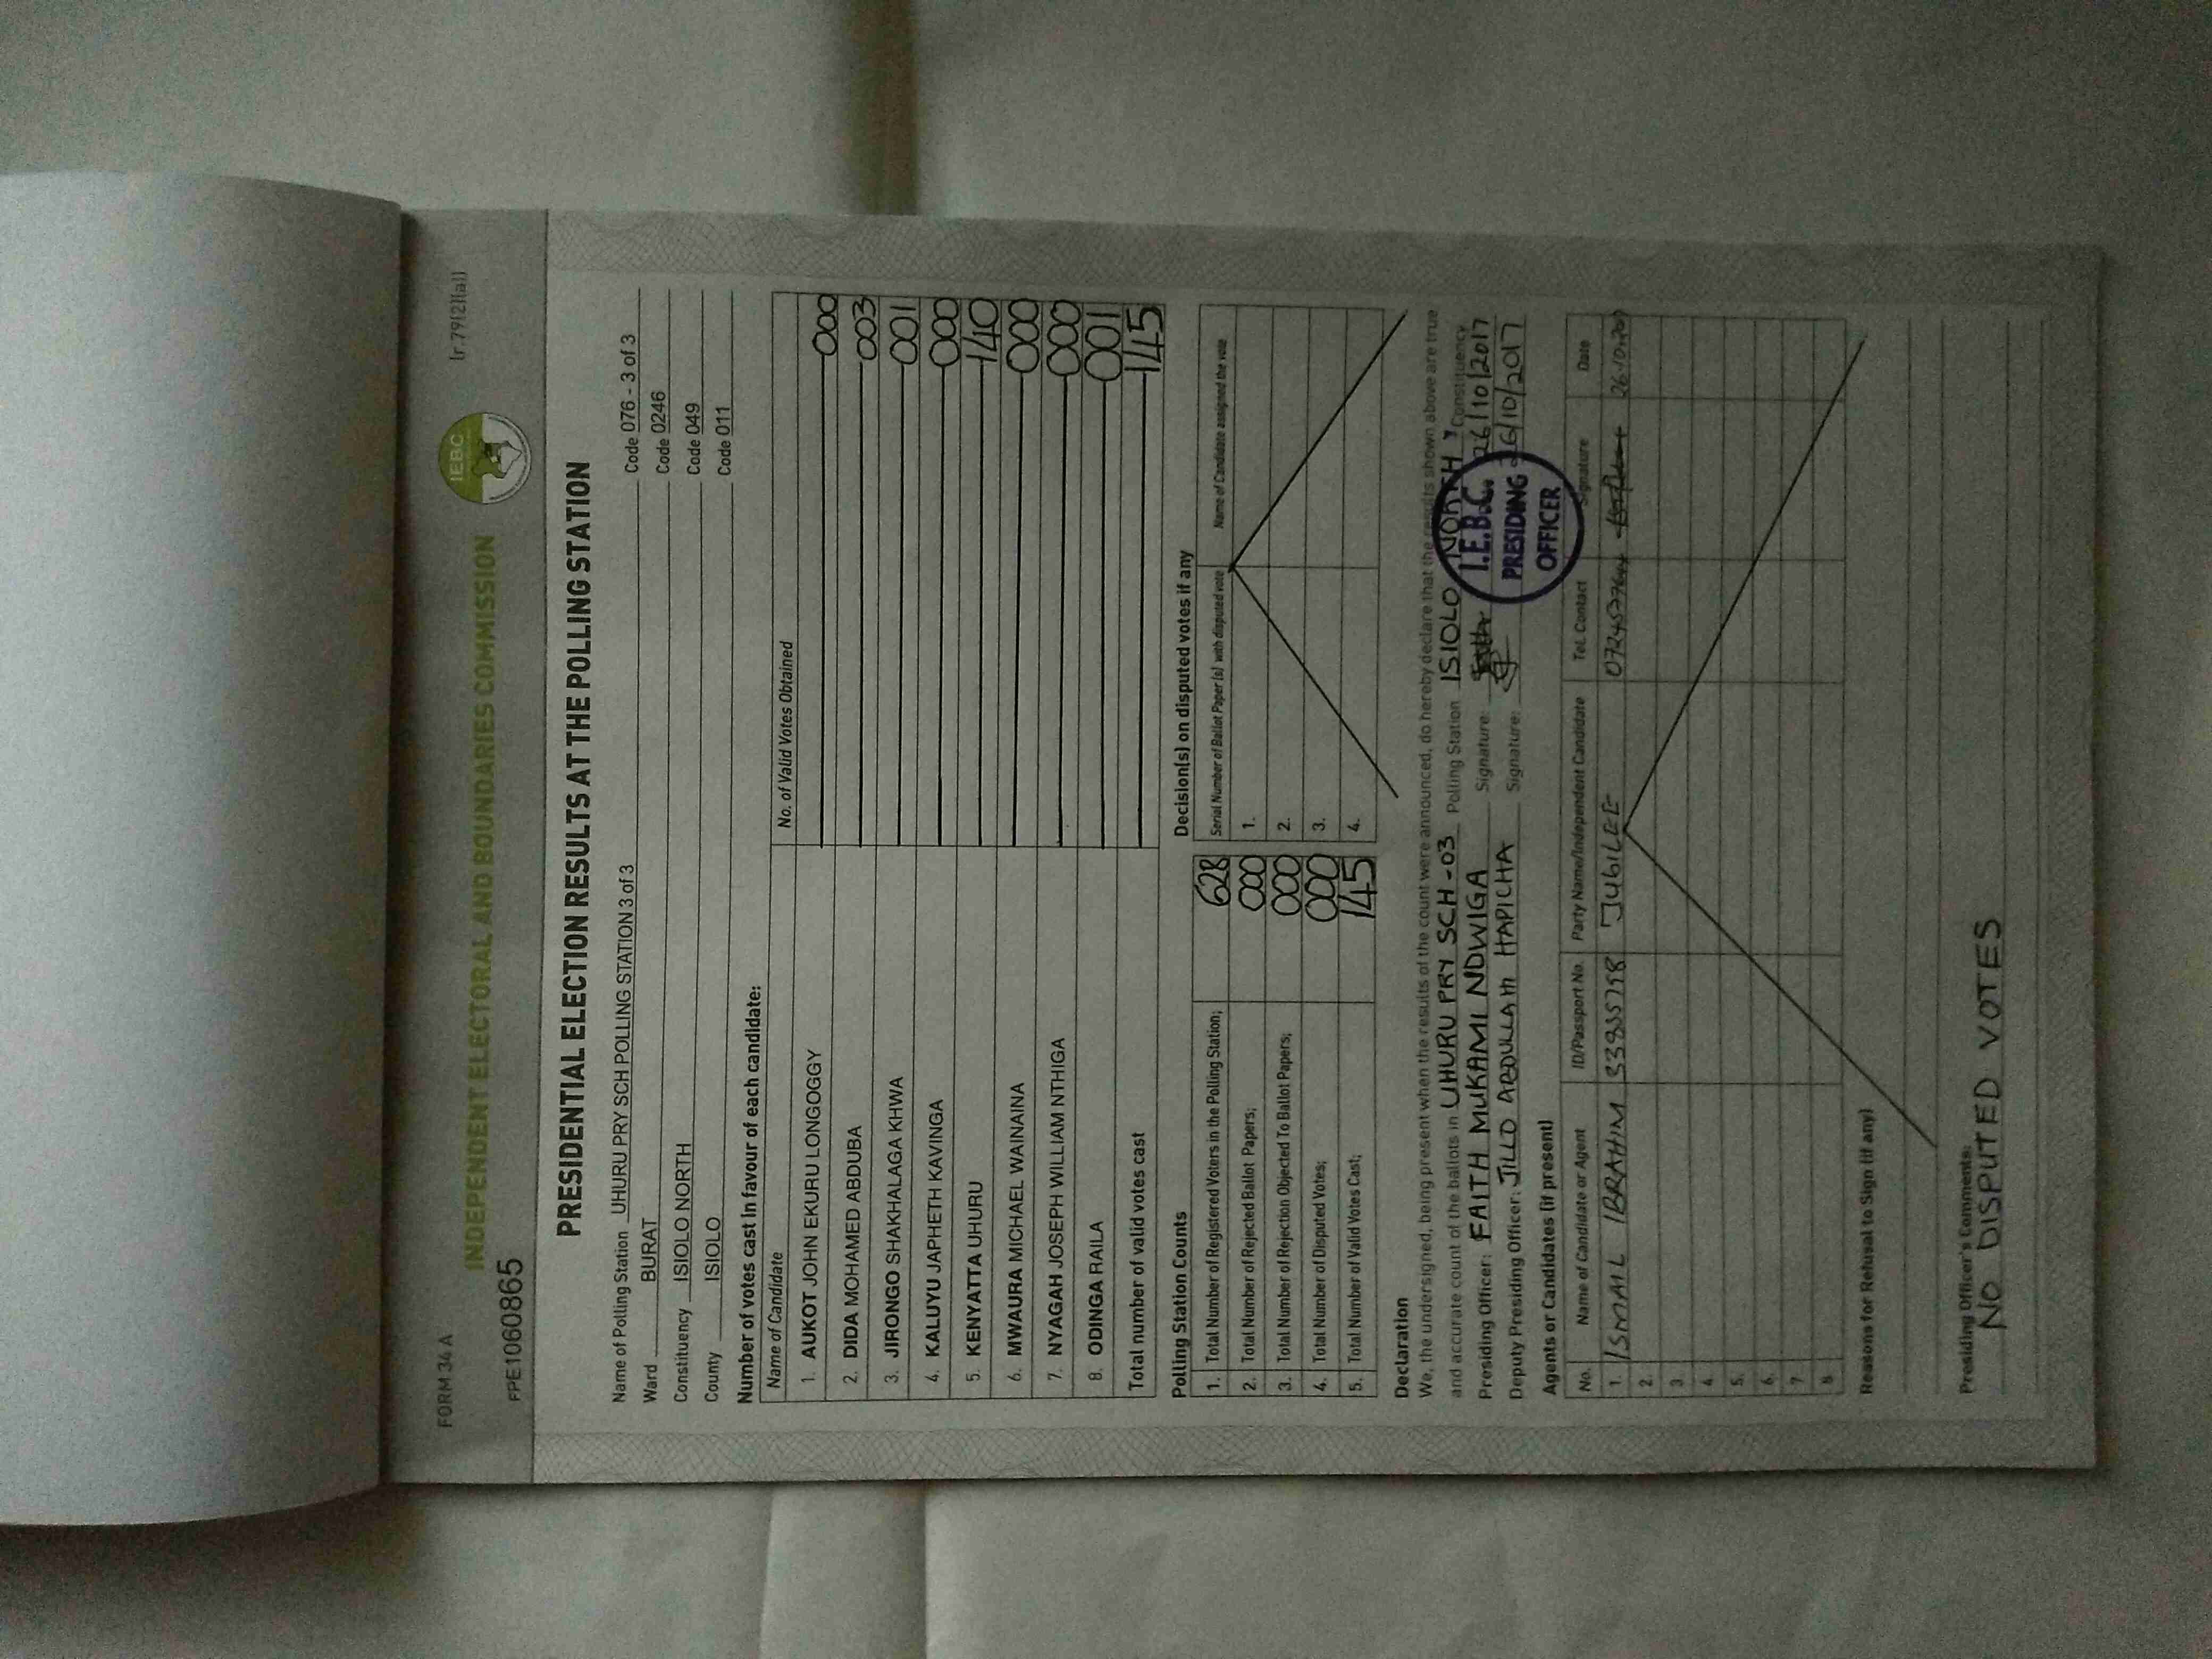 FORM 34 A
(r.79(2)(a))
INDEPENDENT ELECTORAL AND BOUNDARIES COMMISSION
IEBC
FPE1060865
PRESIDENTIAL ELECTION RESULTS AT THE POLLING STATION
Name of Polling Station UHURU PRY SCH POLLING STATION 3 of 3 Code 076 - 3 of 3
Ward BURAT Code 0246
Constituency ISIOLO NORTH Code 049
County ISIOLO Code 011
Number of votes cast in favour of each candidate:
Name of Candidate No. of Valid Votes Obtained
1. AUKOT JOHN EKURU LONGOGGY 000
2. DIDA MOHAMED ABDUBA 003
3. JIRONGO SHAKHALAGA KHWA 001
4. KALUYU JAPHETH KAVINGA 000
5. KENYATTA UHURU 140
6. MWAURA MICHAEL WAINAINA 000
7. NYAGAH JOSEPH WILLIAM NTHIGA 000
8. ODINGA RAILA 001
Total number of valid votes cast 145
Polling Station Counts
1. Total Number of Registered Voters in the Polling Station; 628
2. Total Number of Rejected Ballot Papers; 000
3. Total Number of Rejection Objected To Ballot Papers; 000
4. Total Number of Disputed Votes; 000
5. Total Number of Valid Votes Cast; 145
Decision(s) on disputed votes if any
Serial Number of Ballot Paper (s) with disputed vote Name of Candidate assigned the vote
1.
2.
3.
4.
Declaration
We, the undersigned, being present when the results of the count were announced, do hereby declare that the results shown above are true
and accurate count of the ballots in UHURU PRY SCH - 03 Polling Station ISIOLO NORTH Constituency
Presiding Officer: FAITH MUKAMI NDWIGA Signature: 26/10/2017
Deputy Presiding Officer: JILLO ABDULLAHI HAPICHA Signature: 26/10/2017
I.E.B.C.
PRESIDING
OFFICER
Agents or Candidates (if present)
No. Name of Candidate or Agent ID/Passport No. Party Name/Independent Candidate Tel. Contact Signature Date
1. ISMAIL IBRAHIM JUBILEE
2.
3.
4.
5.
6.
7.
8.
Reasons for Refusal to Sign (if any)
Presiding Officer's Comments:
NO DISPUTED VOTES